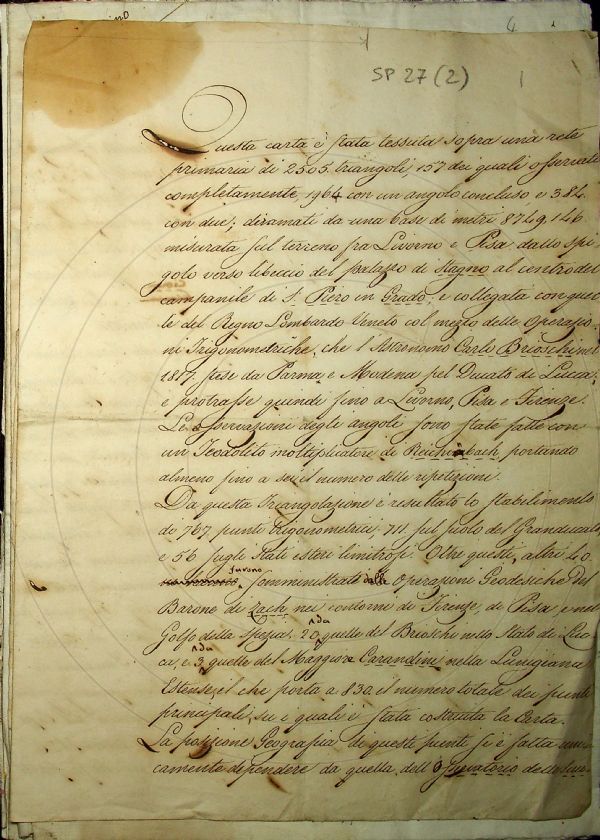 SP 27 (2)
1
Questa carta è stata tessuta sopra una rete
primaria di 2505. triangoli, 157 dei quali osservati
completamente, 1964 con un angolo concluso e 384.
con due; diramati da una base di metri 8749,146
misurata sul terreno fra Livorno e Pisa dallo spi
golo verso libeccio del palazzo di Stagno al centro del
campanile di S. Piero in Grado, e collegata con quel
le del Regno Lombardo Veneto col mezzo delle Operazio
ni Trigonometriche, che l'Astronomo Carlo Brioschi nel
1817. stese da Parma e Modena pel Ducato di Lucca,
e protrasse quindi fino a Livorno, Pisa e Firenze.
Le osservazioni degli angoli sono state fatte con
un Teodolito moltiplicatore di Reichenbach, portando
almeno fino a sei il numero delle ripetizioni.
Da questa Triangolazione è resultato lo stabilimento
di 767 punti trigonometrici; 711. sul suolo del Granducato,
e 56. sugli Stati esteri limitrofi. Oltre questi, altri 40.
furono
somministrati dalle Operazioni Geodesiche del
Barone di Zach nei contorni di Firenze, di Pisa, e nel
Golfo della Spezia, 20 da quelle del Brioschi nello Stato di Luc
ca, e 3 da quelle del Maggiore Carandini nella Lunigiana
Estense; il che porta a 830. il numero totale dei punti
principali, su i quali è stata costruita la Carta.
La posizione Geografica di questi punti si è fatta uni
camente dipendere da quella dell'Osservatorio delle